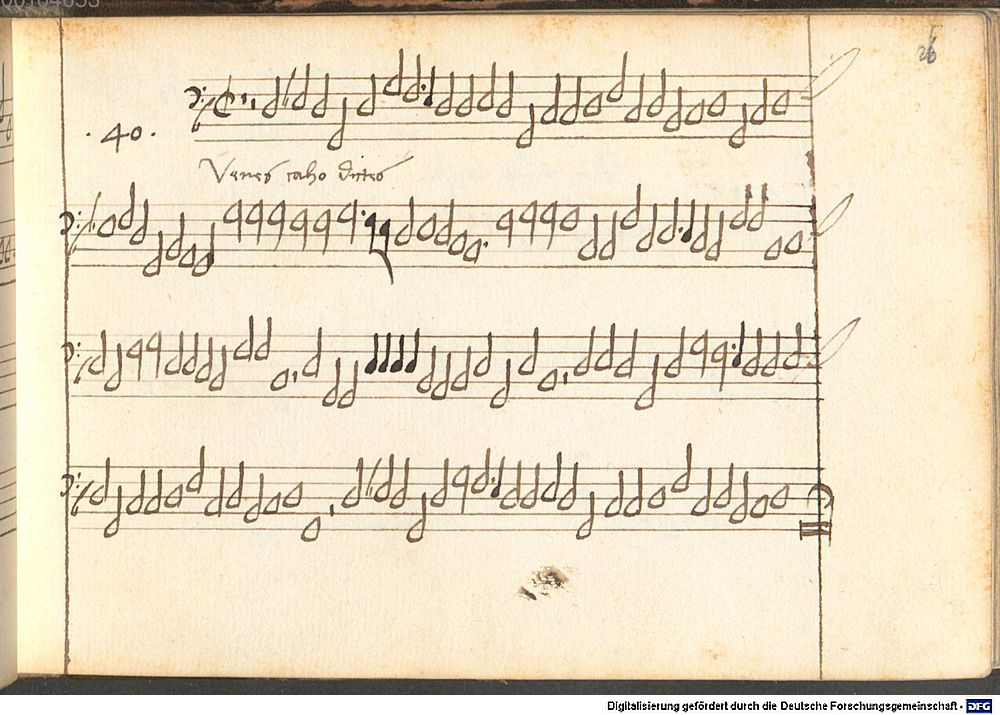 00104633
26
· 40 ·
Venes caho dictes
Digitalisierung gefördert durch die Deutsche Forschungsgemeinschaft - DFG